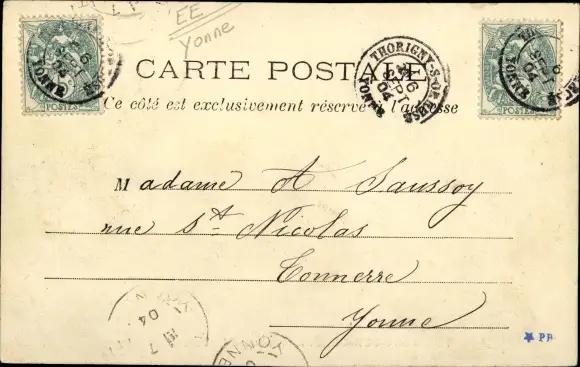 EE
Yonne
CARTE POSTALE
Ce côté est exclusivement réservé à l'adresse
THORIGNY-S-OREUSE
6
SEPT
04
YONNE
POSTES
POSTES
Madame A Saussoy
rue St Nicolas
Tonnerre
Yonne
7
04
YONNE
PB